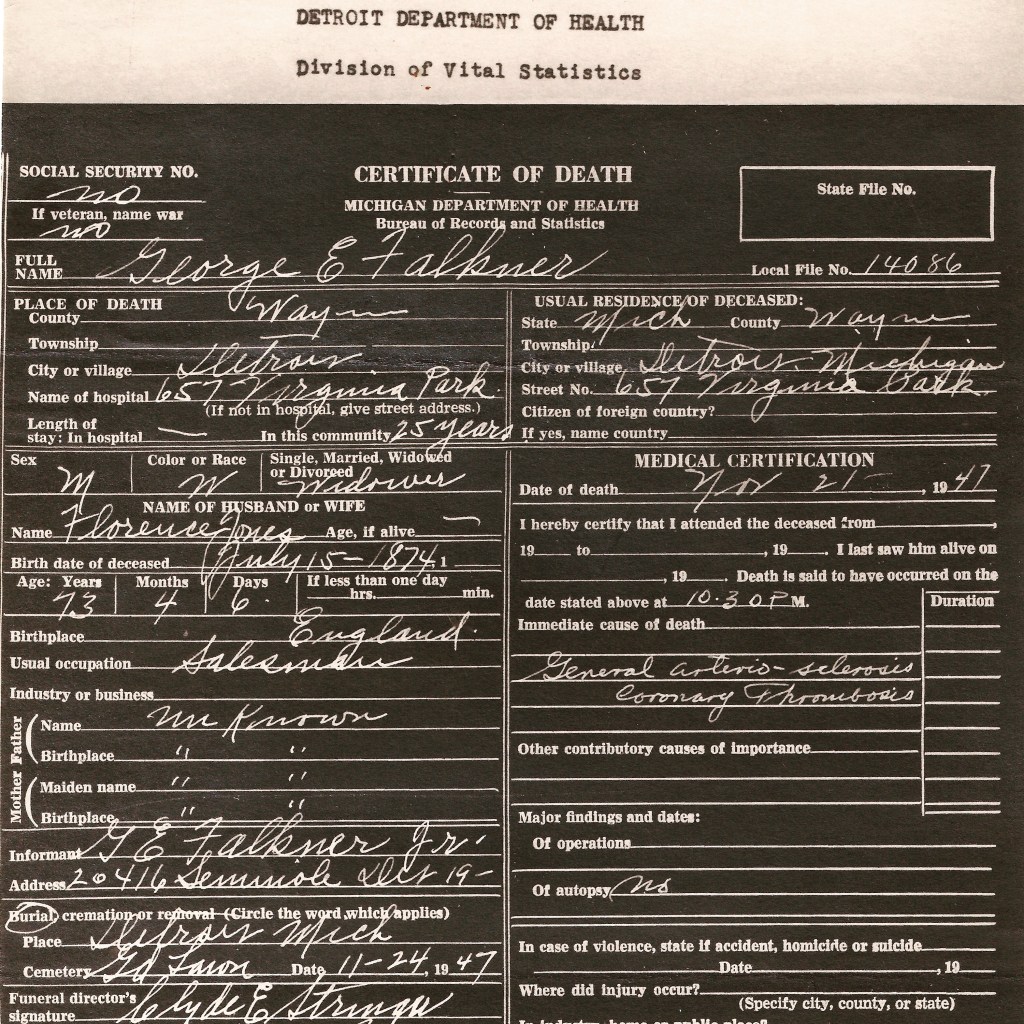 DETROIT DEPARTMENT OF HEALTH
Division of Vital Statistics
SOCIAL SECURITY NO.
no
If veteran, name war
no
CERTIFICATE OF DEATH
MICHIGAN DEPARTMENT OF HEALTH
Bureau of Records and Statistics
State File No.
FULL NAME George E Falkner
Local File No. 14086
PLACE OF DEATH
County Wayne
Township
City or village Detroit
Name of hospital 657 Virginia Park
(If not in hospital, give street address.)
Length of stay: In hospital — In this community 25 years
USUAL RESIDENCE OF DECEASED:
State Mich County Wayne
Township
City or village Detroit. Michigan
Street No. 657 Virginia Park
Citizen of foreign country?
If yes, name country
Sex M
Color or Race W
Single, Married, Widowed or Divorced Widower
NAME OF HUSBAND or WIFE
Name Florence Jones Age, if alive —
Birth date of deceased July 15-1874, 1
Age: Years 73 Months 4 Days 6 If less than one day hrs. min.
Birthplace England.
Usual occupation Salesman
Industry or business
Father
Name Un Known
Birthplace " "
Mother
Maiden name " "
Birthplace " "
Informant G E Falkner Jr.
Address 20416 Seminole Det 19-
Burial, cremation or removal (Circle the word which applies)
Place Detroit Mich
Cemetery Gd Lawn Date 11-24, 1947
Funeral director's signature Clyde E
MEDICAL CERTIFICATION
Date of death Nov 21-, 1947
I hereby certify that I attended the deceased from ,
19 to , 19 . I last saw him alive on
, 19 . Death is said to have occurred on the
date stated above at 10.30 P M.
Duration
Immediate cause of death
General arterio-sclerosis
Coronary Thrombosis
Other contributory causes of importance
Major findings and dates:
Of operations
Of autopsy no
In case of violence, state if accident, homicide or suicide
Date , 19
Where did injury occur?
(Specify city, county, or state)
In industry, home or public place?